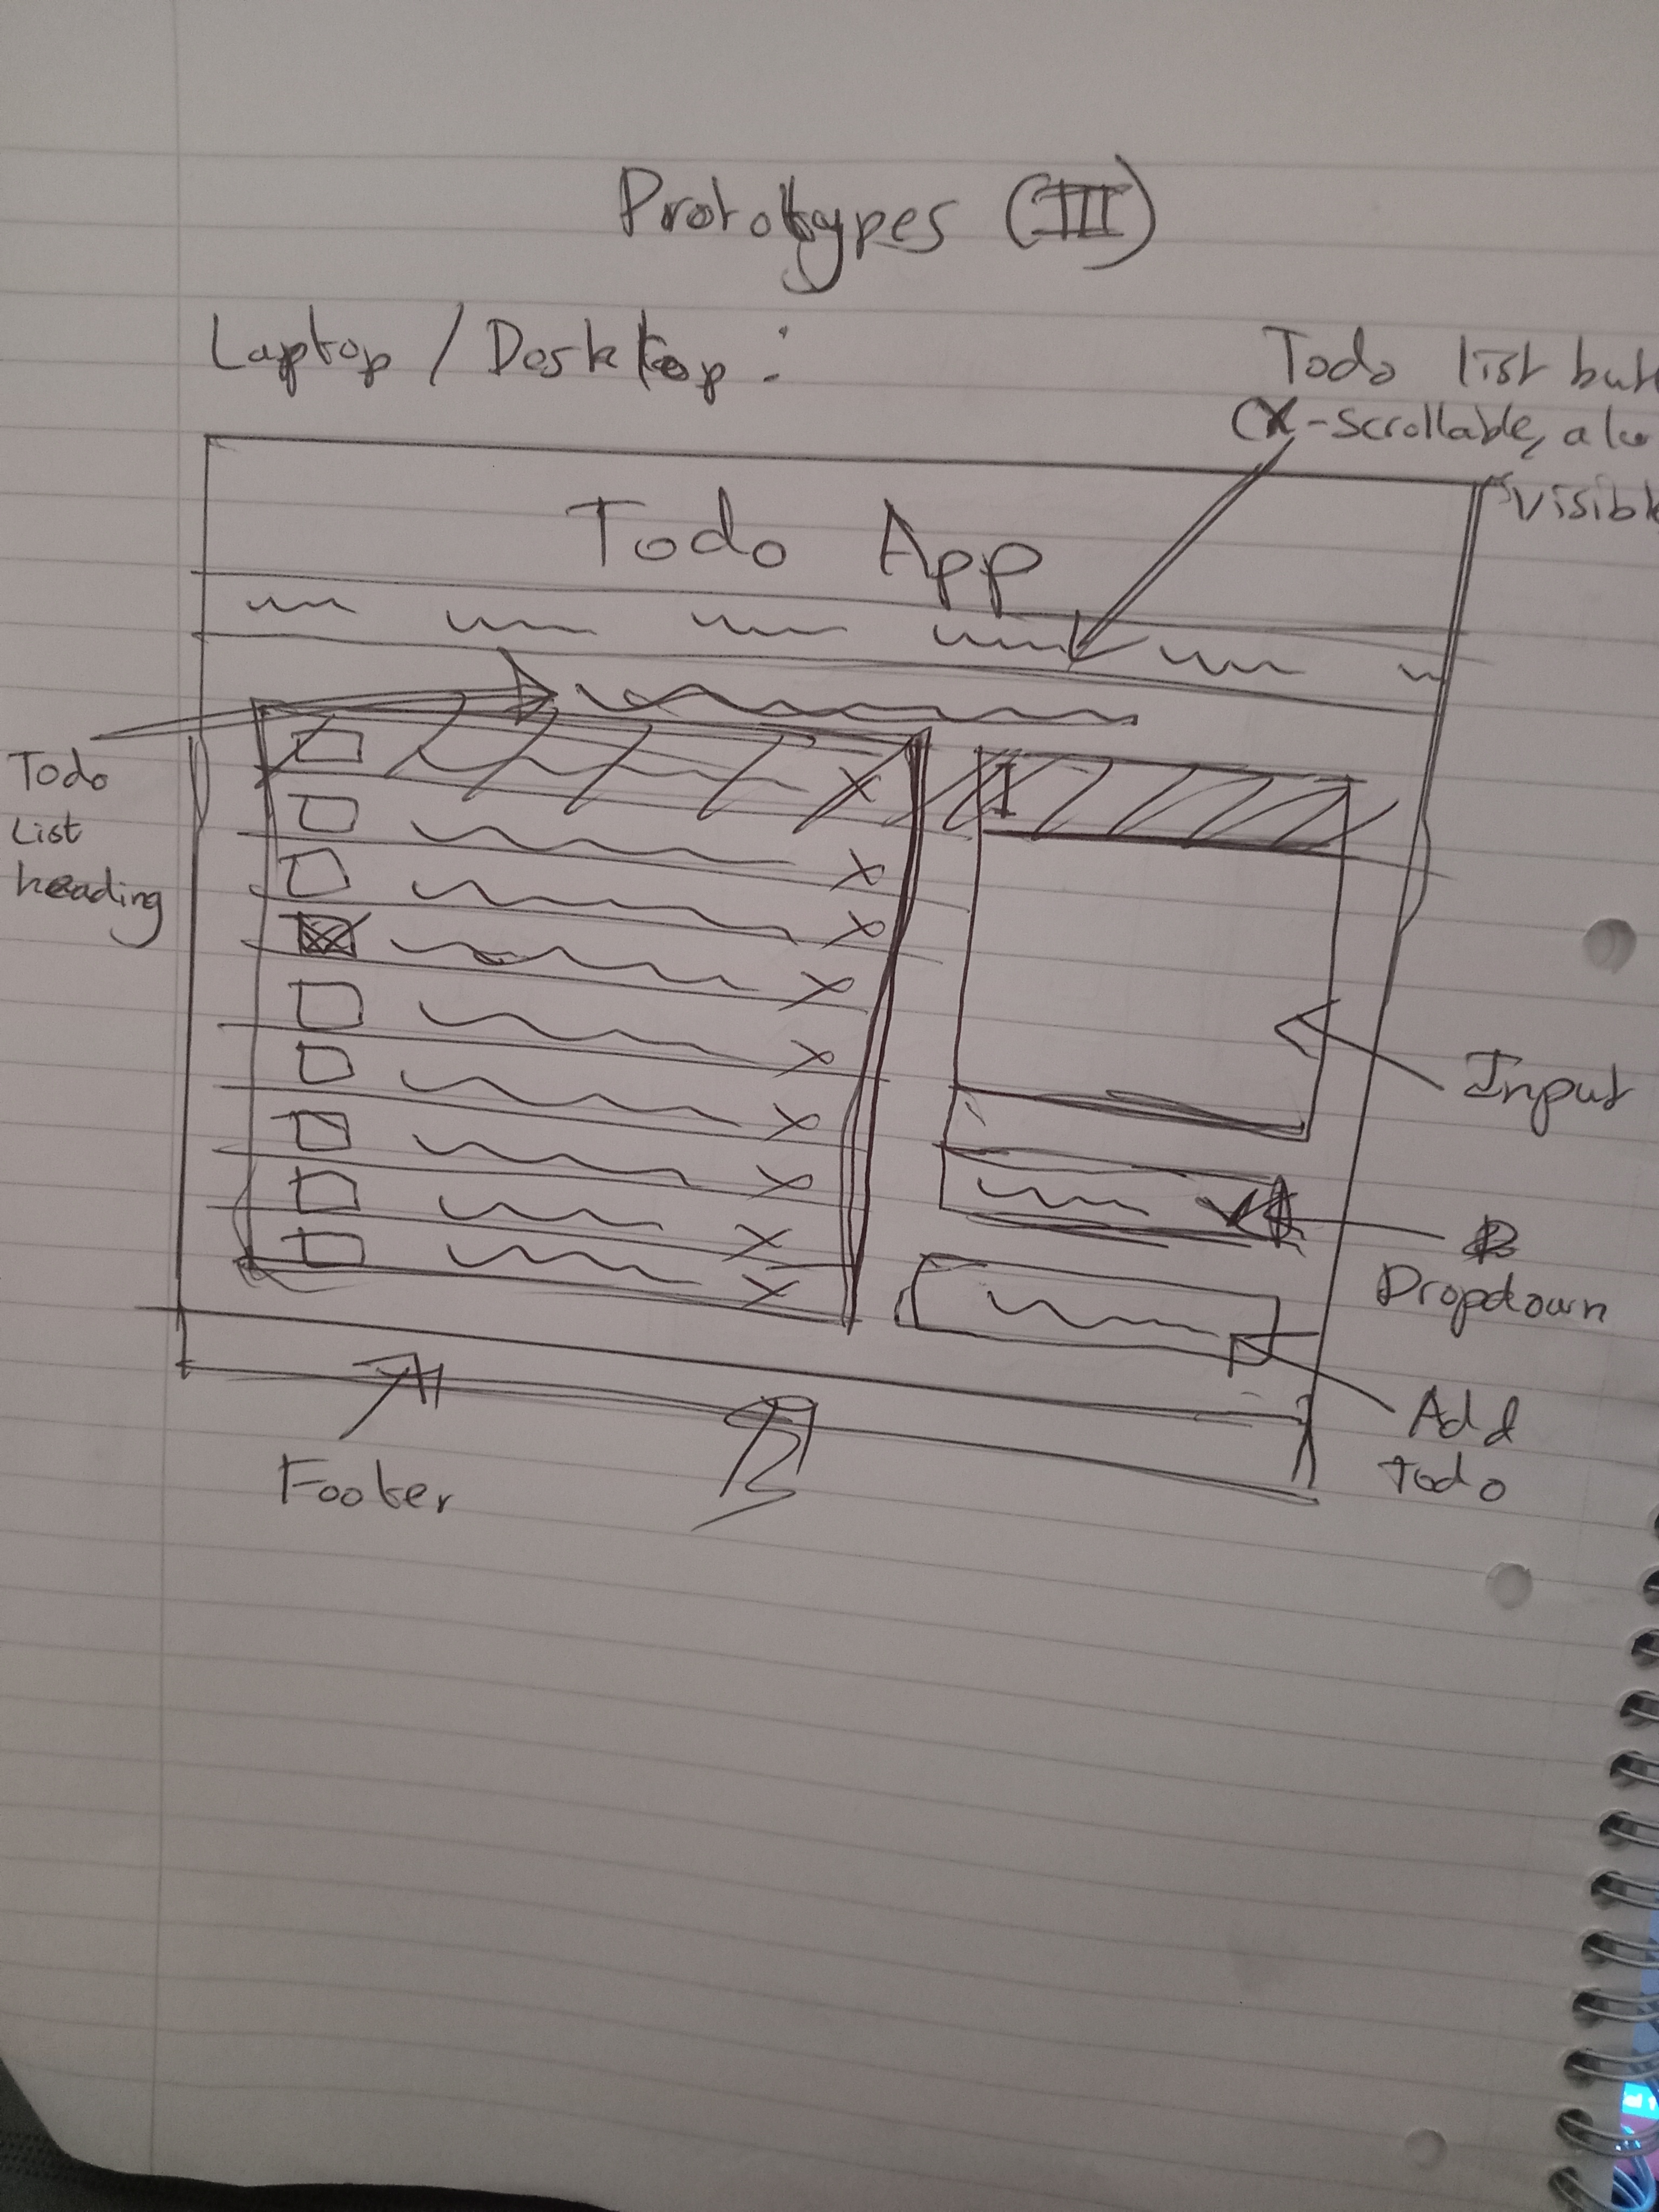 Prototypes (III)
Laptop / Desktop :
Todo list but
(X-scrollable, also
visible
Todo App
Todo
List
heading
Input
Dropdown
Add
Todo
Footer